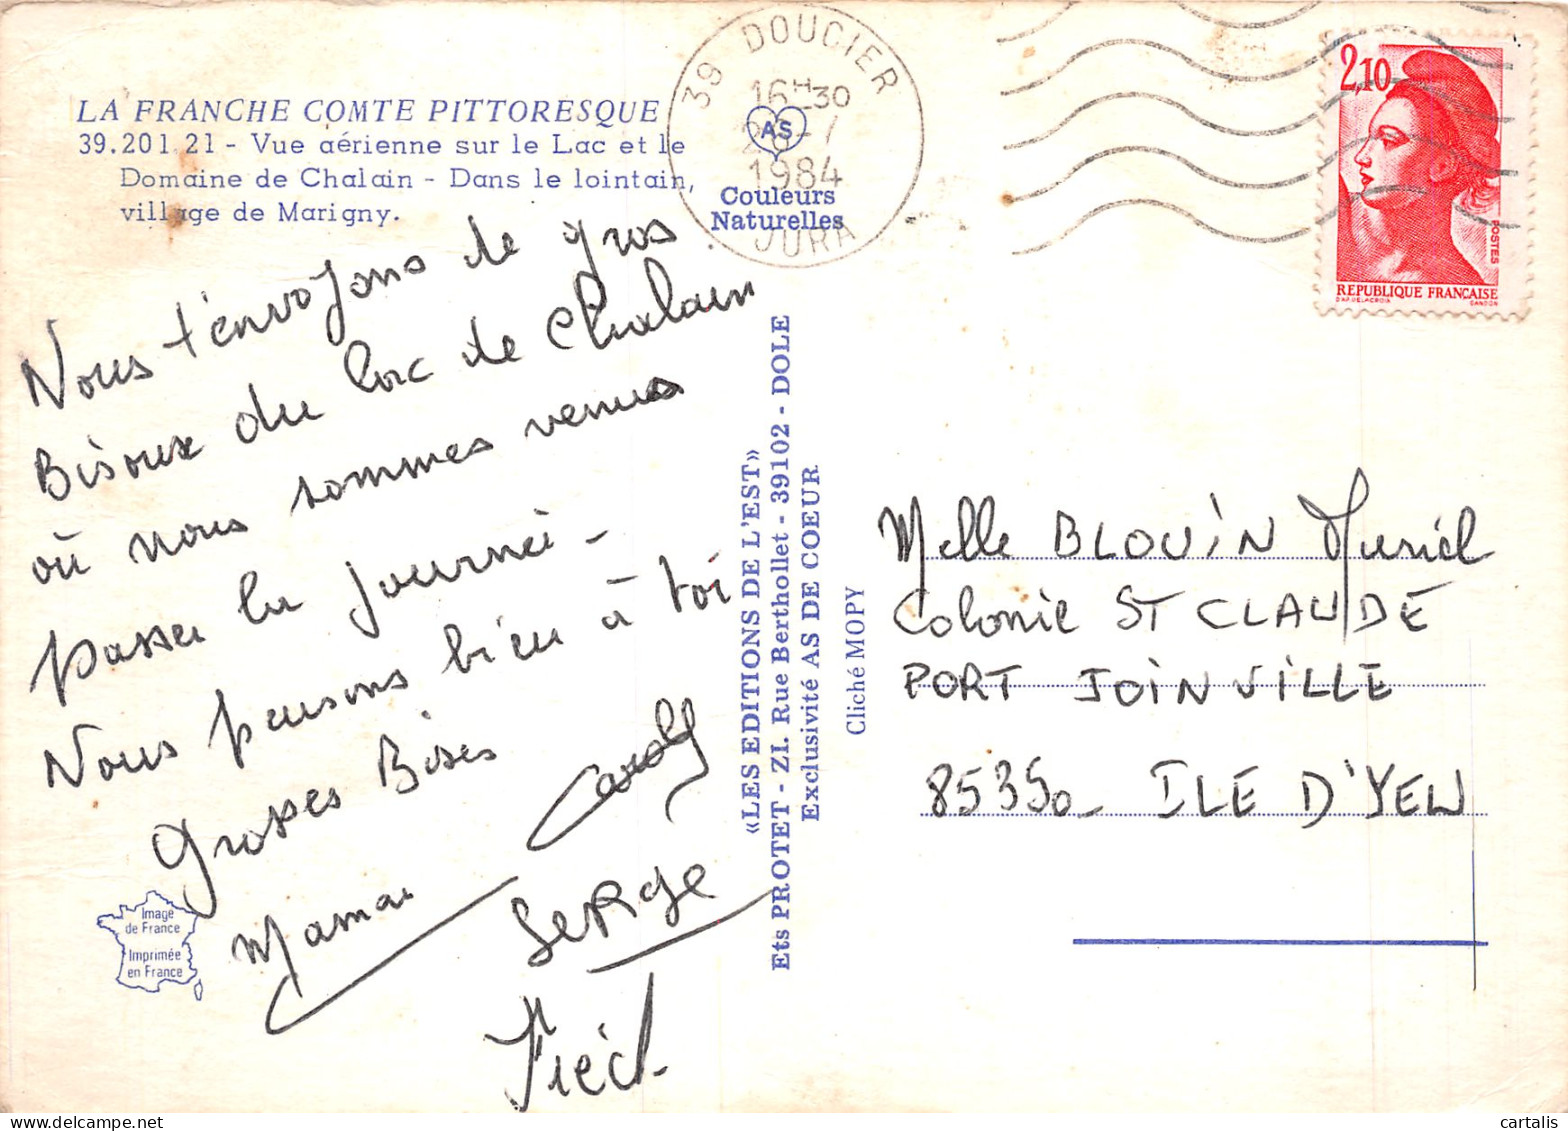 LA FRANCHE COMTE PITTORESQUE
39.201 21 - Vue aérienne sur le Lac et le
Domaine de Chalain - Dans le lointain,
village de Marigny.
39 DOUCIER
16H30
1984
JURA
AS
Couleurs
Naturelles
2,10
POSTES
REPUBLIQUE FRANÇAISE
D'AP. DELACROIX
GANDON
Nous t'envoyons de gros
Bisoux du lac de Chalain
où nous sommes venus
passer la journéé -
Nous pensons bien à toi
Grosses Bises
Maman
SERGE
Image
de France
Imprimée
en France
«LES EDITIONS DE L'EST»
Ets PROTET - ZI. Rue Berthollet - 39102 - DOLE
Exclusivité AS DE COEUR
Cliché MOPY
Melle BLOUIN Muriel
Colonie ST CLAUDE
PORT JOINVILLE
85350 - ILE D'YEU
cartalis